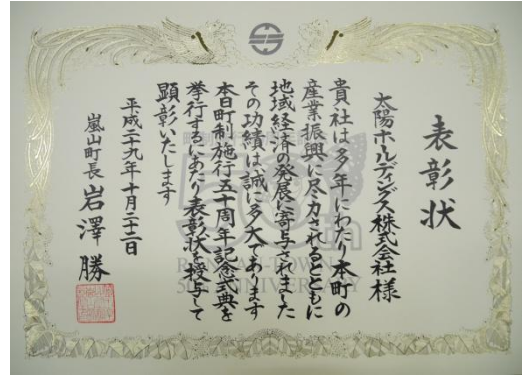 表彰状
太陽ホールディングス株式会社様
貴社は多年にわたり本町の
産業振興に尽力されるとともに
地域経済の発展に寄与されました
その功績は誠に多大であります
本日町制施行五十周年記念式典を
挙行するにあたり表彰状を授与して
顕彰いたします
平成二十九年十月二十二日
嵐山町長 岩澤勝